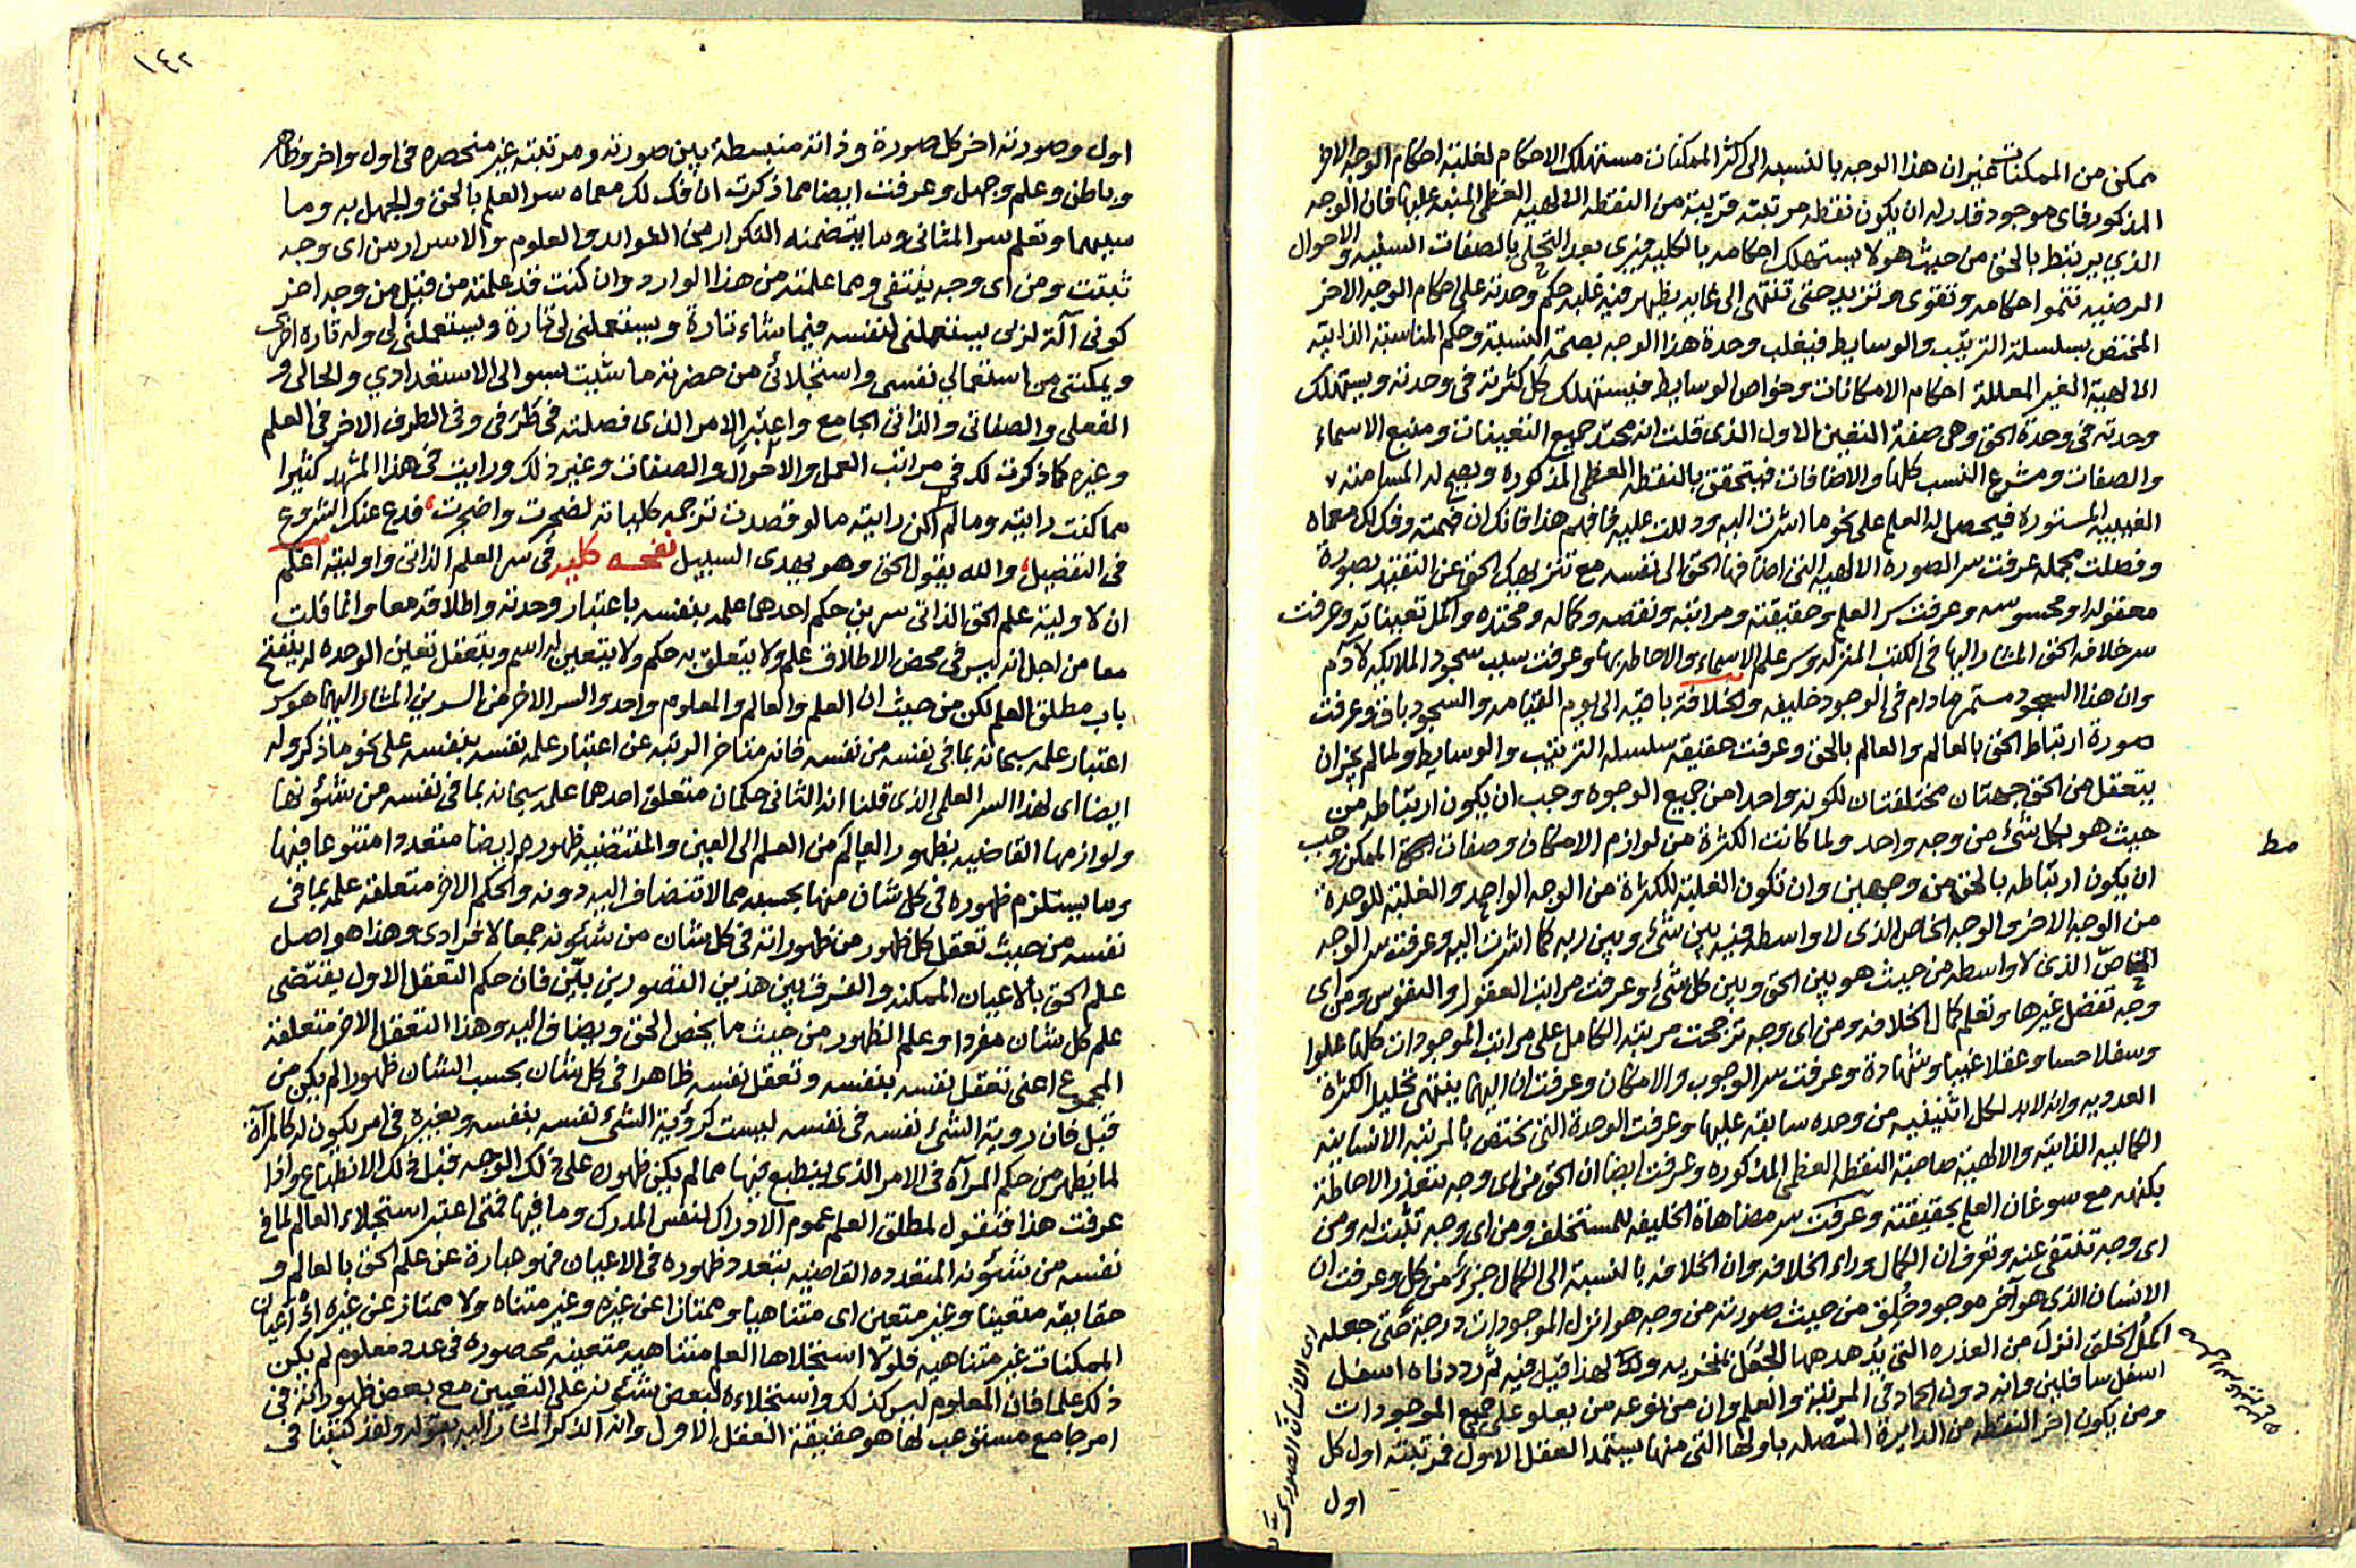 ممكن من الممكنات غير ان هذا الوجه بالنسبه الى اكثر الممكنات مستهلك الاحكام لغلبة احكام الوجه الاخر
المذكور فاى موجود قدر له ان يكون نقطه مرتبته قريبة من النقطه الالهيه العظمى المنبه عليها فان الوجه
الذي يرتبط بالحق من حيث هو لا يستهلك احكامه بالكليه فيرى بعد التجلى بالصفات السلبيه والاحوال
المرضيه تنموا احكامه وتقوى وتزيد حتى تنتهى الى غايه يظهر فيه غلبه حكم وحدته على احكام الوجه الاخر
المختص بسلسلة الترتيب والوسايط فيغلب وحدة هذا الوجه بصحة النسبة وحكم المناسبة الذاتية
الالهية الغير المعللة احكام الامكانات وخواص الوسايط فيستهلك كل كثرته فى وحدته ويستهلك
وحدته فى وحدة الحق وهى صفة التعين الاول الذى قلت انه محتد جميع التعينات ومنبع الاسماء
والصفات ومشرع النسب كلها والاضافات فيتحقق بالنقطه العظمى المذكوره ويصح له المسامته
الغيبيه المستوره فيحصل له العلم على نحو ما اشرت اليه ودللت عليه فافهم هذا فانك ان فهمته وفك لك معماه
وفصلت مجمله عرفت سر الصورة الالهيه التى اضافها الحق الى نفسه مع تنزيهك الحق عن التقيد بصورة
معقوله او محسوسه وعرفت سر العلم وحقيقته ومراتبه ونقصه وكماله ومحتده واكمل تعيناته وعرفت
سر خلافه الحق المشار اليها فى الكتب المنزله وسر علم الاسماء والاحاطه بها وعرفت سبب سجود الملايكه لآدم
وان هذا السجود مستمر ما دام فى الوجود خليفه والخلافة باقيه الى يوم القيامه والسجود باق وعرفت
صورة ارتباط الحق بالعالم والعالم بالحق وعرفت حقيقة سلسله الترتيب والوسايط ولما لم يجز ان
يتعقل من الحق جهتان مختلفتان لكونه واحدا من جميع الوجوه وجب ان يكون ارتباطه من
حيث هو بكل شئ من وجه واحد ولما كانت الكثرة من لوازم الامكان وصفات الممكن وجب
ان يكون ارتباطه بالحق من وجهين وان تكون الغلبة للكثرة من الوجه الواحد والغلبة للوحدة
من الوجه الاخر والوجه الخاص الذى لا واسطه فيه بين شئ وبين ربه كما اشرت اليه وعرفت سر الوجه
الخاصّ الذى لا واسطه من حيث هو بين الحق وبين كل شئ وعرفت مراتب العقول والنفوس ومن اى
وجه تفضل غيرها وتعلم كمال الخلافه ومن اى وجه ترجحت مرتبة الكامل على مراتب الموجودات كلها علوا
وسفلا حسا وعقلا غيبا وشهادة وعرفت سر الوجوب والامكان وعرفت ان اليهما ينتهى تحليل الكثرة
العدديه وانه لابد لكل اثنينيه من وحده سابقة عليها وعرفت الوحدة التى تختص بالمرتبه الانسانيه
الكماليه الذاتية والالهية صاحبة النقطه العظمى المذكوره وعرفت ايضا ان الحق من اى وجه تتعذر الاحاطة
بكنهه مع سوغان العلم بحقيقته وعرفت سر مضاهاة الخليفه للمستخلف ومن اى وجه تثبت له ومن
اى وجه تنتفى عنه وتعرف ان الكمال وراء الخلافه وان الخلافه بالنسبة الى الكمال جزء من كل وعرفت ان
الانسان الذى هو آخر موجود خُلق من حيث صورته من وجه هو انزل الموجودات درجة حتى جعله
اكمل الخلق انزل من العذره التى يُدهدهها الجُعَل بمنخريه ولهذا قيل فيه ثم رددناه اسفل
اسفل سافلين وانه دون الجماد فى المرتبة والعلم وان من نوعه من يعلو على جميع الموجودات
ومن يكون اخر النقطه من الدايرة المتصله باولها التى منها يستمد العقل الاول فمرتبته اول كل
اول
مط
اى الانسان الصورى
١٤٢
اول وصورته اخر كل صورة وذاته منبسطة بين صورته ومرتبته غير منحصره فى اول واخر وظاهر
وباطن وعلم وجهل وعرفت ايضا مما ذكرت ان فك لك معماه سر العلم بالحق والجهل به وما
سببهما وتعلم سر المثانى وما يتضمنه التكرار من الفوايد والعلوم والاسرار من اى وجه
ثبتت ومن اى وجه ينتفى ومما علمته من هذا الوارد وان كنت قد علمته من قبل من وجه اخر
كونى آلة لربى يستعملنى لنفسه فيما شاء تارة ويستعملنى لى تارة ويستعملنى لى وله تاره اخرى
ويمكننى من استعمالي نفسى واستجلائى من حضرته ما شيت بسوالى الاستعدادي والحالى و
الفعلى والصفاتى والذاتى الجامع واعتبر الامر الذى فصلته فى طرفى وفى الطرف الاخر فى العلم
وغيره كما ذكرت لك فى مراتب العمل والاحوال والصفات وغير ذلك ورايت فى هذا المشهد كثيرا
مما كنت رايته وما لم اكن رايته ما لو قصدت ترجمه كلياته لضجرت واضجرت فدع عنك الشروع
فى التفصيل والله يقول الحق وهو يهدى السبيل نفحه كليه فى سر العلم الذاتى واوليته اعلم
ان لاولية علم الحق الذاتى سرين حكم احدهما علمه بنفسه باعتبار وحدته واطلاقه معا وانما قلت
معا من اجل انه ليس فى محض الاطلاق علم ولا يتعلق به حكم ولا يتعين له اسم وبتعقل تعين الوحده له ينفتح
باب مطلق العلم لكن من حيث ان العلم والعالم والمعلوم واحد والسر الاخر من السرين المشار اليهما هو سر
اعتبار علمه سبحانه بما فى نفسه من نفسه فانه متاخر الرتبه عن اعتبار علمه نفسه بنفسه على نحو ما ذكر وله
ايضا اى لهذا السر العلمى الذى قلنا انه الثانى حكمان متعلق احدهما علمه سبحانه بما فى نفسه من شئونها
ولوازمها القاضيه بظهور العالم من العلم الى العين والمقتضيه ظهوره ايضا متعددا متنوعا فيها
وما يستلزم ظهوره فى كل شان منها بحسبه مما لا تنضاف اليه دونه والحكم الاخر متعلقه علمه بما فى
نفسه من حيث تعقل كل ظهور من ظهوراته فى كل شان من شئونه جمعا لا فرادى وهذا هو اصل
علم الحق بالاعيان الممكنه والفرق بين هذين التصورين بيّن فان حكم التعقل الاول يقتضى
علم كل شان مفردا وعلم الظهور من حيث ما يخص الحق ويضاف اليه وهذا التعقل الاخر متعلقه
المجموع اعنى تعقل نفسه بنفسه وتعقل نفسه ظاهرا فى كل شان بحسب الشان ظهورا لم يكن من
قبل فان روية الشئ نفسه فى نفسه ليست كرؤية الشئ نفسه بنفسه وبغيره فى امر يكون له كالمرآة
لما يظهر من حكم المرآة فى الامر الذى ينطبع فيها مما لم يكن ظهوره على ذلك الوجه قبل ذلك الانطباع واذا
عرفت هذا فنقول لمطلق العلم عموم الادراك لنفس المدرك وما فيها فمتى اعتبر استجلاء العالم لما فى
نفسه من شئونه المتعدده القاضيه بتعدد ظهوره فى الاعيان فهو عبارة عن علم الحق بالعالم و
حقايقه متعينا وغير متعين اى متناهيا وممتازا عن غيره وغير متناه ولا ممتاز عن غيره اذ اعيان
الممكنات غير متناهيه فلولا استجلاها العلم متناهيه متعينه محصوره فى عدد معلوم لم يكن
ذلك علما فان المعلوم ليس كذلك واستجلاءه لبعض شئونه على التعيين مع بعض ظهوراته فى
امر جامع مستوعب لها هو حقيقة العقل الاول وانه الذكر المشار اليه بقوله ولقد كتبنا فى